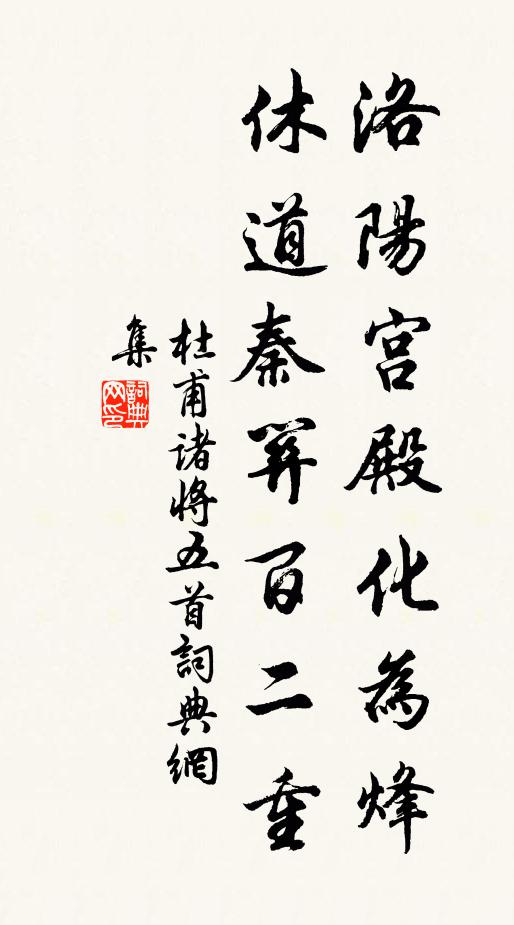 洛陽宮殿化為烽
休道秦關百二重
杜甫諸將五首詞典網
集
詞典
网印